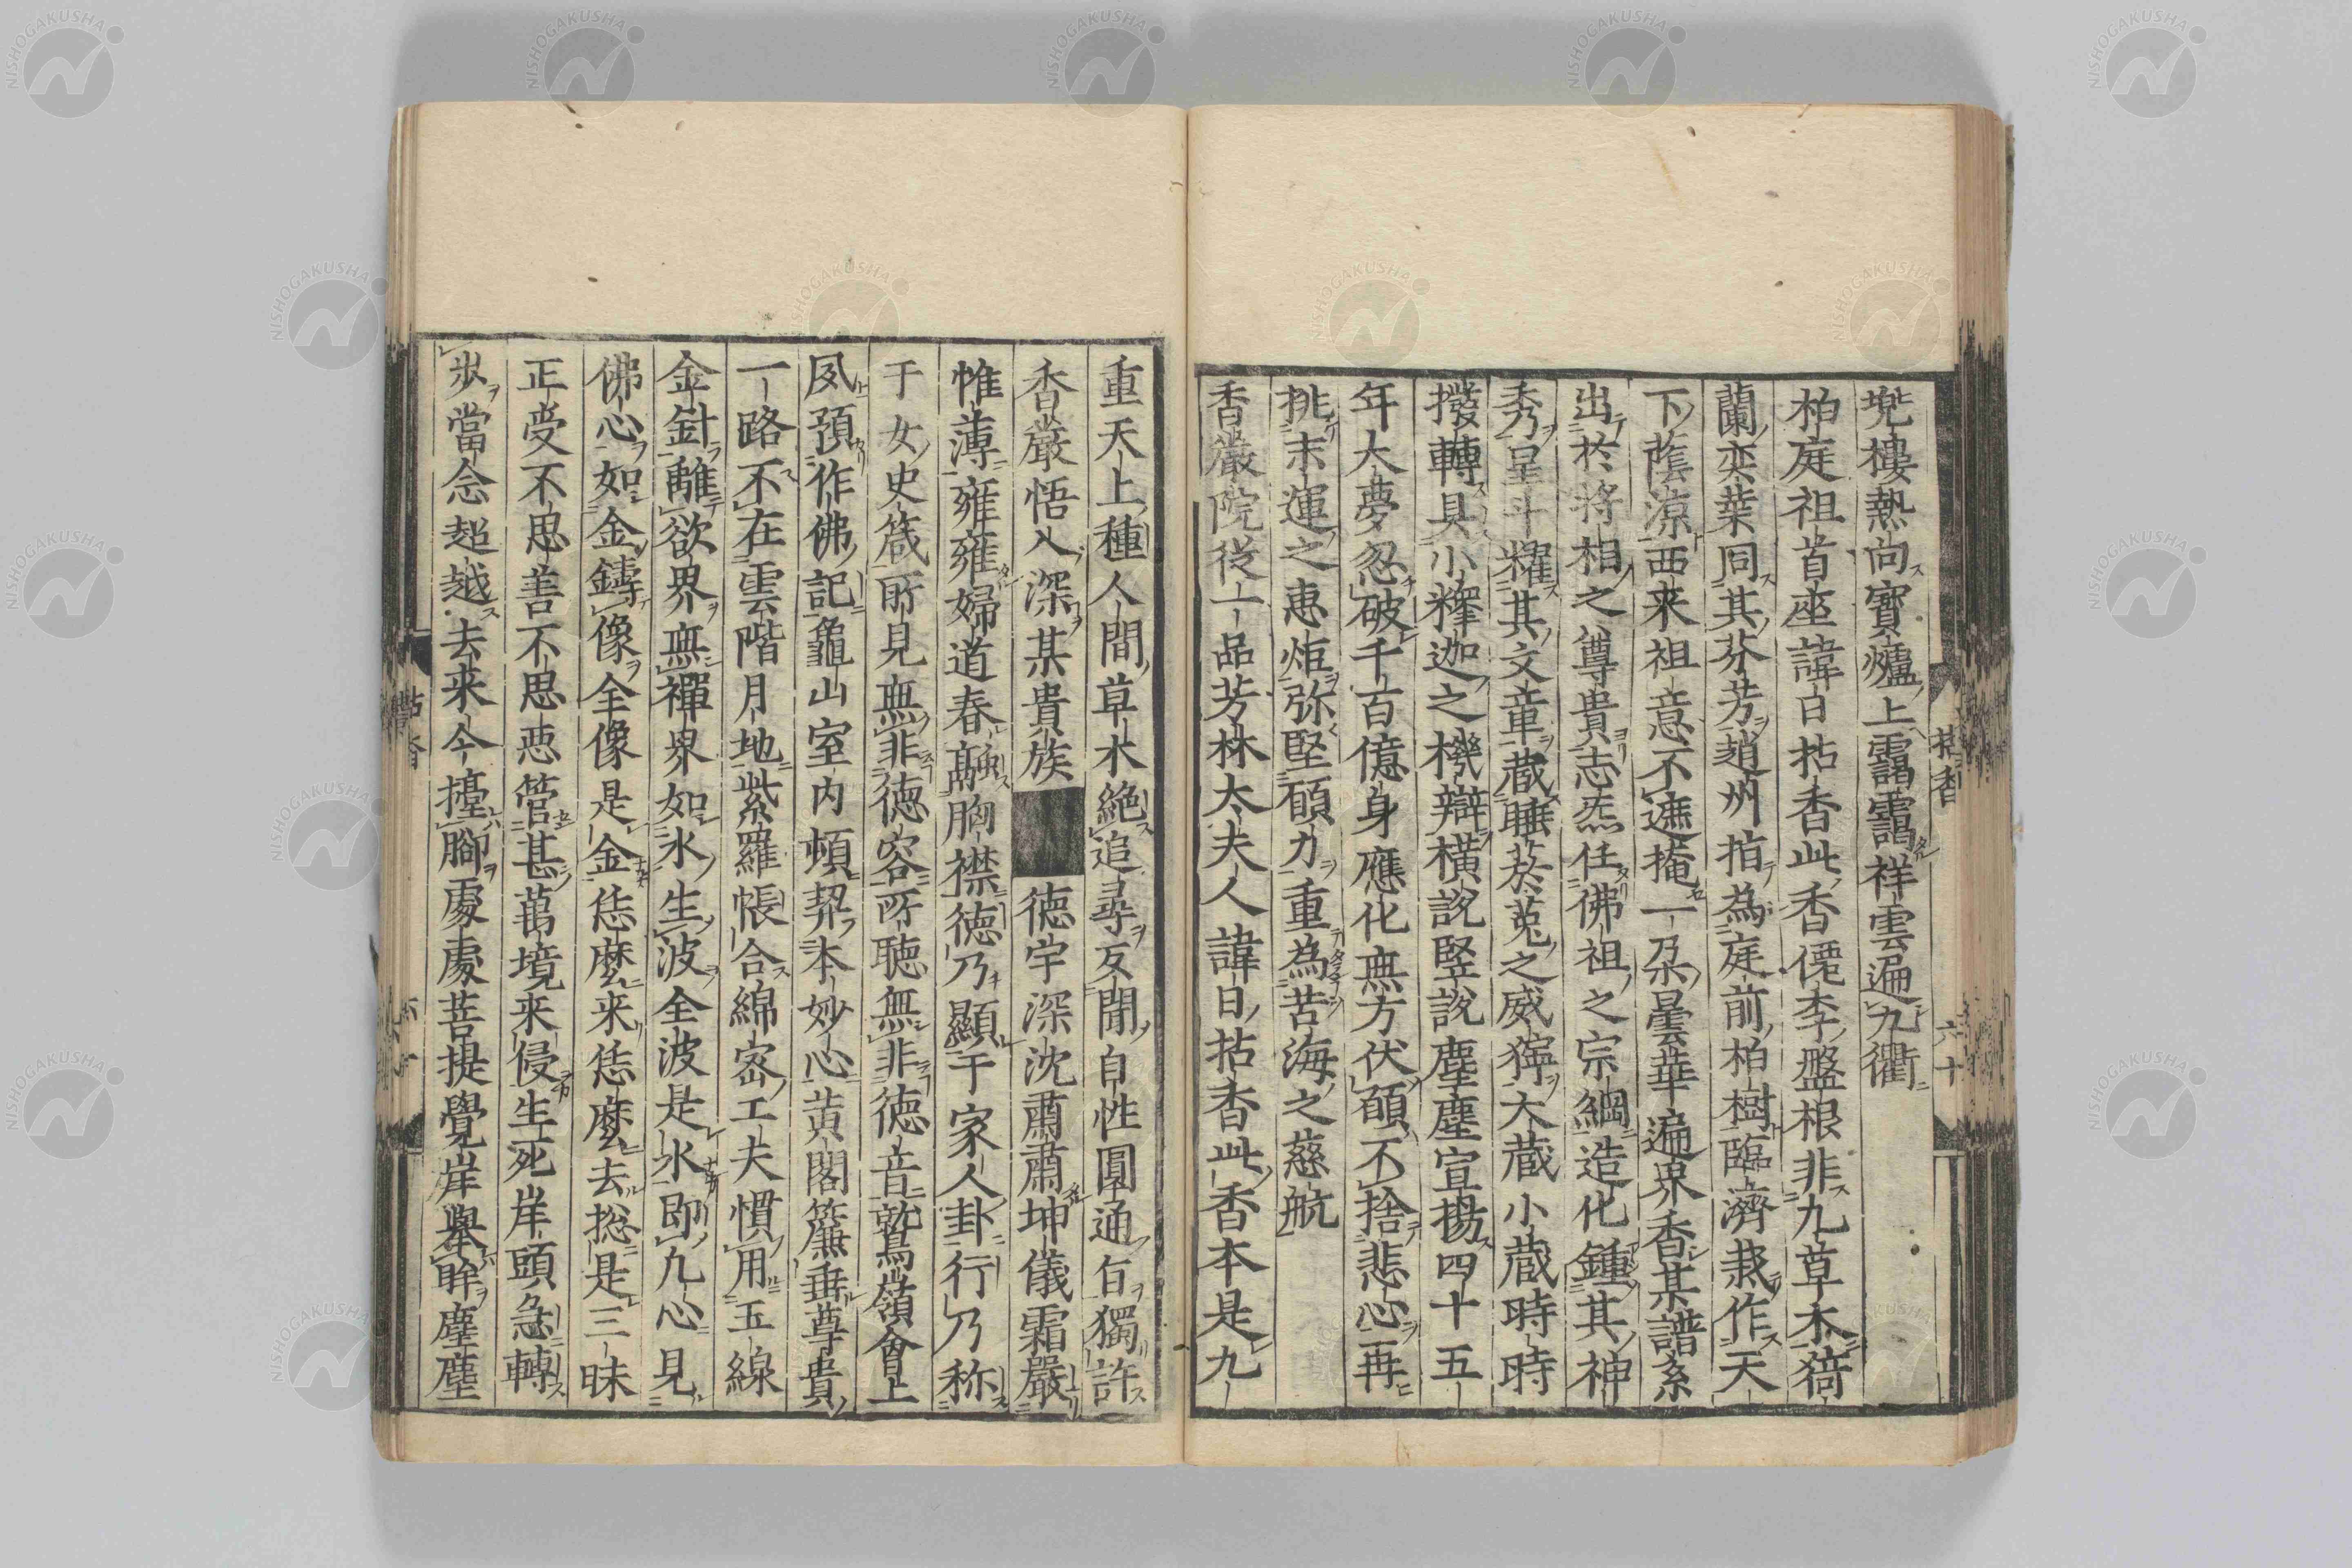 兜樓熱向寶爐上靄靄祥雲遍九衢
柏庭祖首座諱日拈香此香僊李盤根非九草木猗
蘭奕葉同其芬芳趙州指為庭前柏樹臨濟栽作天
下蔭凉西来祖意不遮掩一朶曇華遍界香某譜系
出於將相之尊貴志炁任佛祖之宗綱造化鍾其神
秀呈斗耀其文章蔵睡於菟之威獰大蔵小蔵時時
撥轉具小釋迦之機辯橫説竪説塵塵宣揚四十五
年大夢忽破千百億身應化無方伏願不捨悲心再
挑末運之惠炬弥堅願力重為苦海之慈航
香嚴院従一品芳林太夫人諱日拈香此香本是九
重天上種人間草木絶追尋互聞自性圓通旨獨許
香嚴悟入深某貴族 徳宇深沈肅肅坤儀霜嚴
惟薄雍雍婦道春融胸襟徳乃顯于家人卦行乃称
于女史箴所見無非徳容所聴無非徳音鷲嶺會上
夙預作佛記龜山室内頓契本妙心黄閣簾垂尊貴
一路不在雲階月地紫羅帳合綿密工夫慣用五線
金針離欲界無禪界如氷生波全波是氷即九心見
佛心如金鑄像全像是金恁麼来恁麼去総是三昧
正受不思善不思悪管甚萬境来侵生死岸頭急轉
歩當念超越去来今擡腳處處菩提覺岸舉眸塵塵
拈香
六十
NISHOGAKUSHA